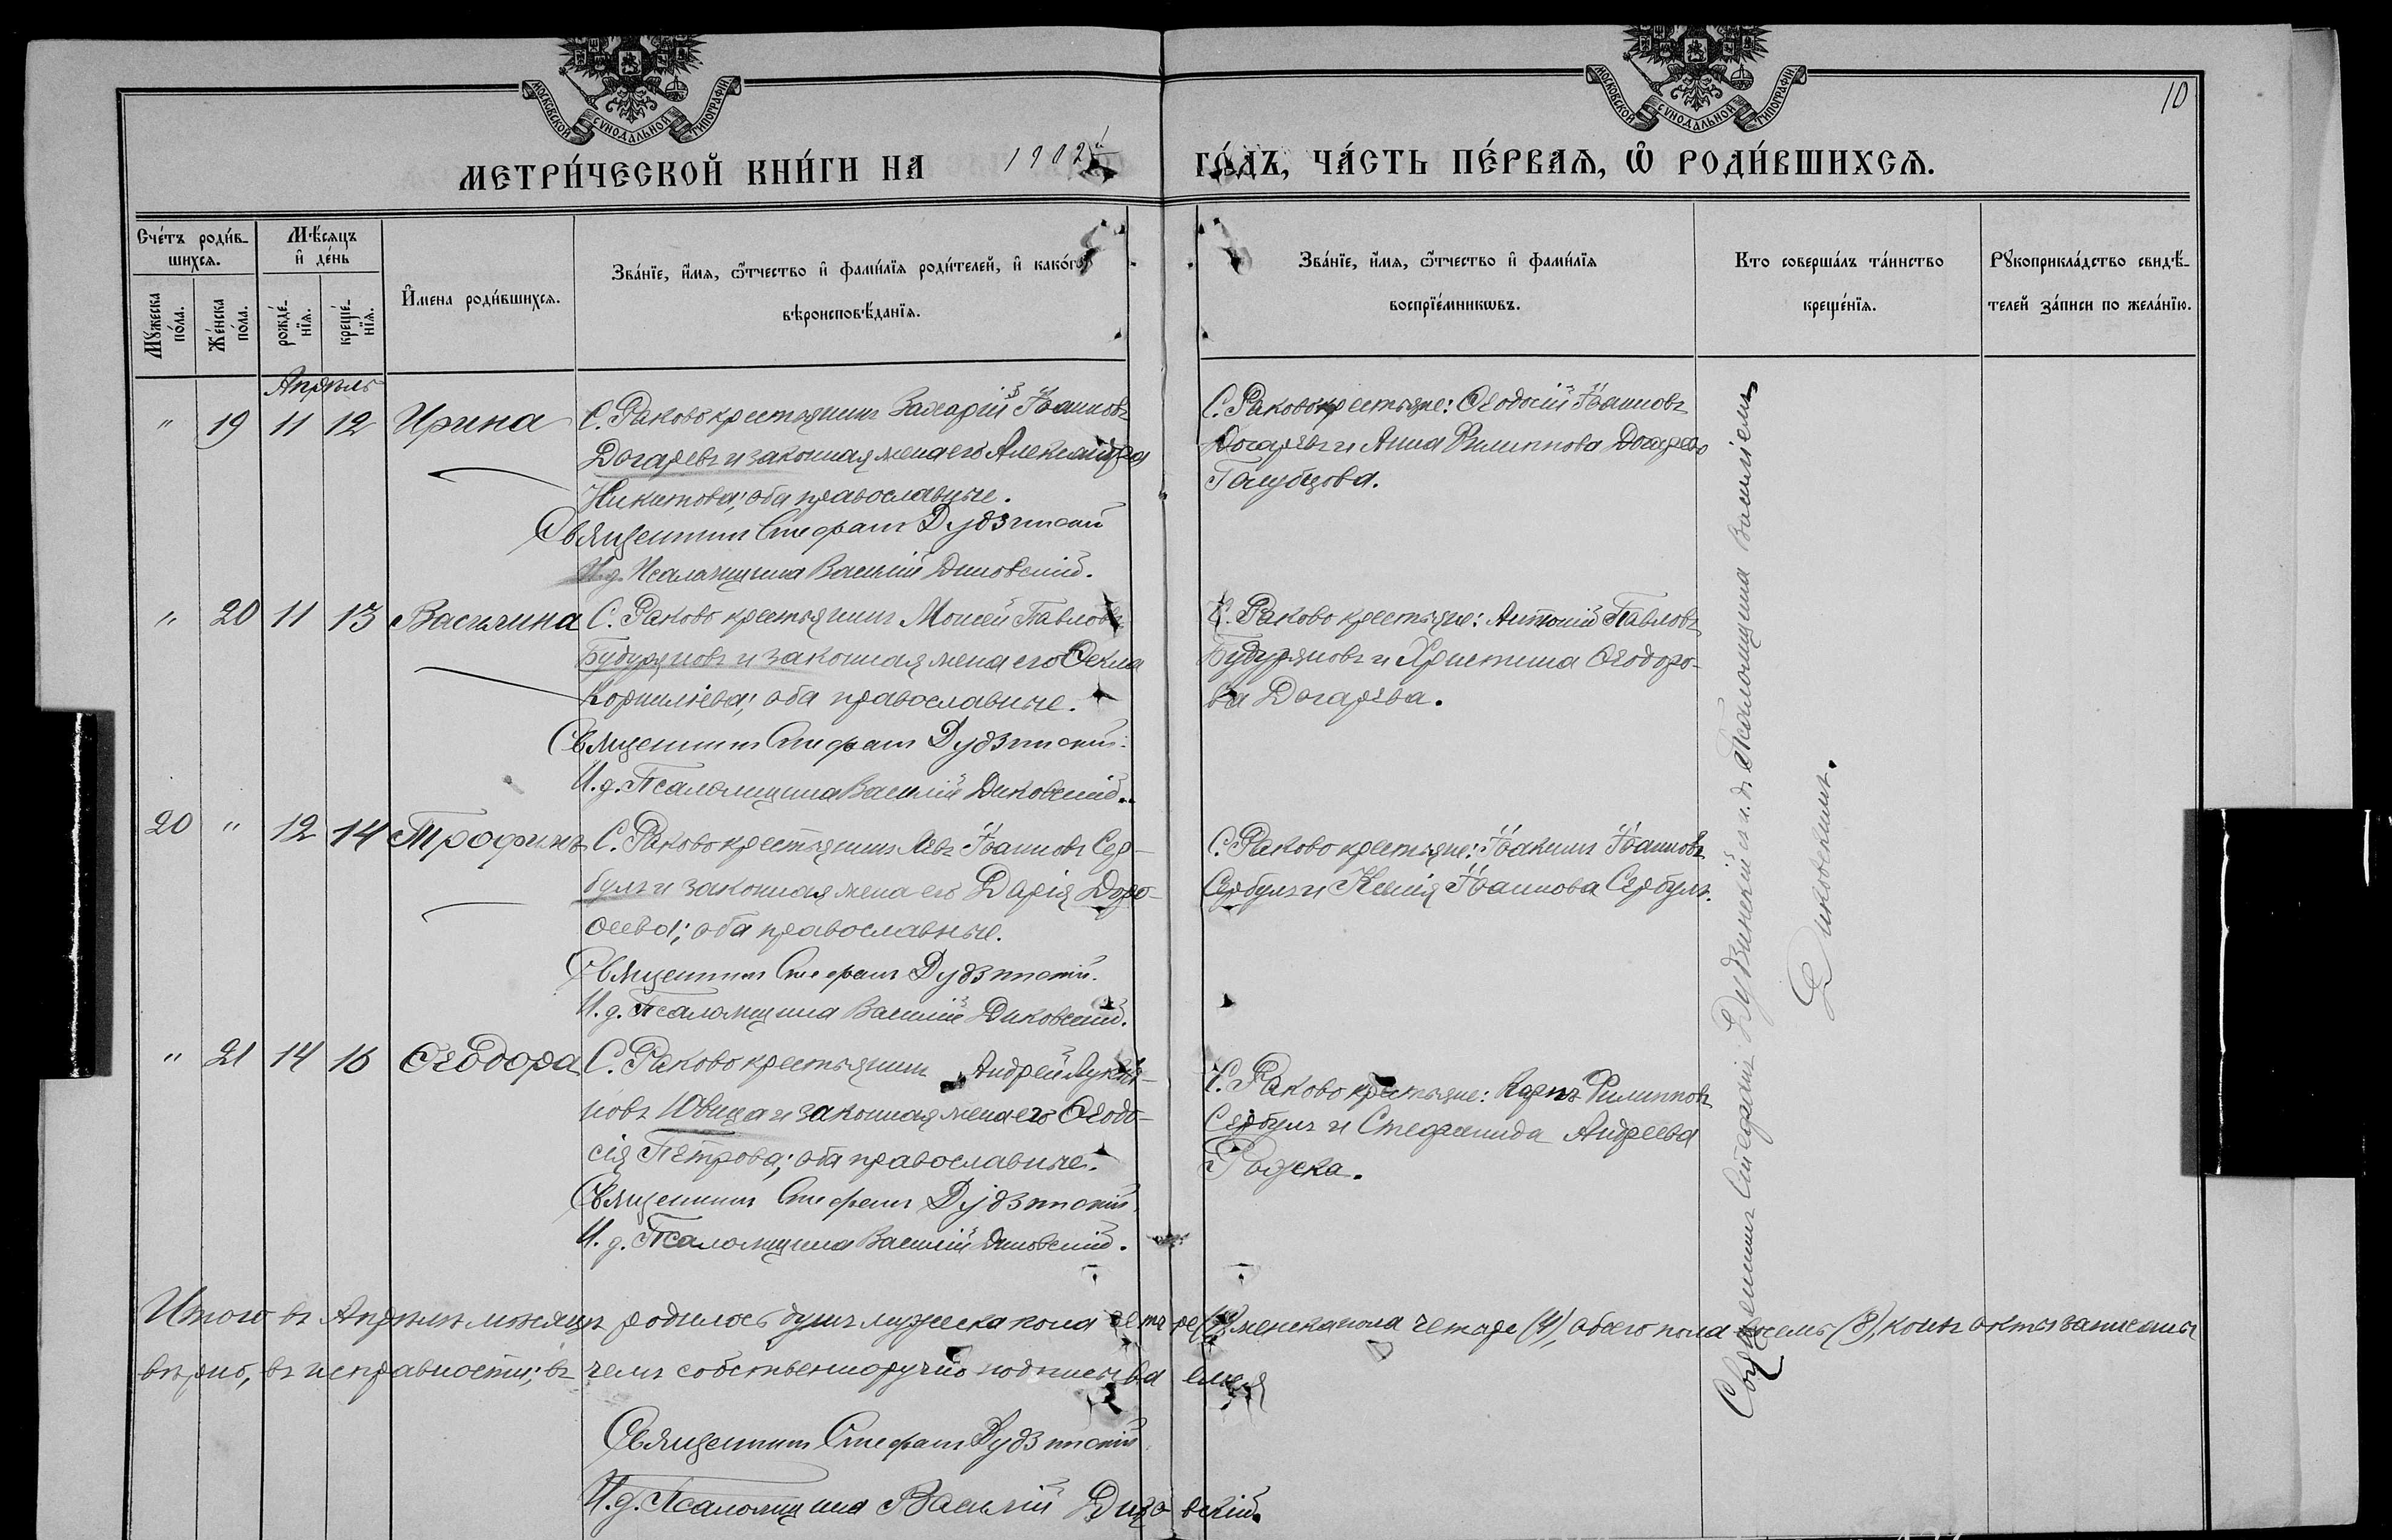 МОСКОВСКОЙ СѴНОДАЛЬНОЙ ТИПОГРАФІИ
МОСКОВСКОЙ СѴНОДАЛЬНОЙ ТИПОГРАФІИ
10
МЕТРИ́ЧЕСКОЙ КНИ́ГИ НА 1902й ГО́ДЪ, ЧА́СТЬ ПЕ́РВАѦ, Ѡ҆ РОДИ́ВШИХСѦ.
Сче́тъ роди́в-
шихсѧ.
Мꙋ́жеска по́ла.
Же́нска по́ла.
Мѣ́сѧцъ и҆ де́нь
рожде́-нїѧ.
креще́-нїѧ.
И҆мена роди́вшихсѧ.
Зва́нїе, и҆́мѧ, ѻ҆́тчество и҆ фами́лїѧ роди́телей, и҆ како́гѡ
вѣроисповѣ́данїѧ.
Зва́нїе, и҆́мѧ, ѻ҆́тчество и҆ фами́лїѧ
воспрїе́мникѡвъ.
Кто соверша́лъ та́инство
креще́нїѧ.
Рꙋкоприкла́дство свидѣ́-
телей за́писи по жела́нїю.
Апрѣль
" 19 11 12 Ирина С. Раково крестьянинъ Захарій Іоанновъ
Догаревъ и законная жена его Александра
Никитова; оба православные.
Священникъ Стефанъ Дудзинскій
И.д. Псаломщика Василій Диковскій.
С. Раково крестьяне: Ѳеодосій Іоанновъ
Догаревъ и Анна Филиппова
Голубцова.
" 20 11 13 Василина С. Раково крестьянинъ Моисей Павловъ
Будуряновъ и законная жена его Ѳекла
Корниліева; оба православные.
Священникъ Стефанъ Дудзинскій.
И.д. Псаломщика Василій Диковскій.
С. Раково крестьяне: Антоній Павловъ
Будуряновъ и Христина Ѳеодоро-
ва Догарева.
20 " 12 14 Трофимъ С. Раково крестьянинъ Левъ Іоанновъ Сер-
булъ и законная жена его Дарія Доро-
ѳеева; оба православные.
Священникъ Стефанъ Дудзинскій.
И.д. Псаломщика Василій Диковскій.
С. Раково крестьяне: Іоакимъ Іоанновъ
Сербулъ и Ксенія Іоаннова Сербулъ.
" 21 14 16 Ѳеодора С. Раково крестьянинъ Андрей Лукья-
новъ Ювица и законная жена его Ѳеодо-
сія Петрова; оба православные.
Священникъ Стефанъ Дудзинскій.
И.д. Псаломщика Василій Диковскій.
С. Раково крестьяне: Карпъ Филипповъ
Сербулъ и Стефанида Андреева
Священникъ Стефанъ Дудзинскій и и.д. Псаломщика Василіемъ
Диковскимъ.
Итого въ Апрѣлѣ мѣсяцѣ родилось душъ мужеска пола четыре (4), женска пола четыре (4), обоего пола восемь (8), коихъ акты записаны
вѣрно, въ исправности; въ чемъ собственноручно подписываемся
Священникъ Стефанъ Дудзинскій.
И.д. Псаломщика Василій Диковскій.